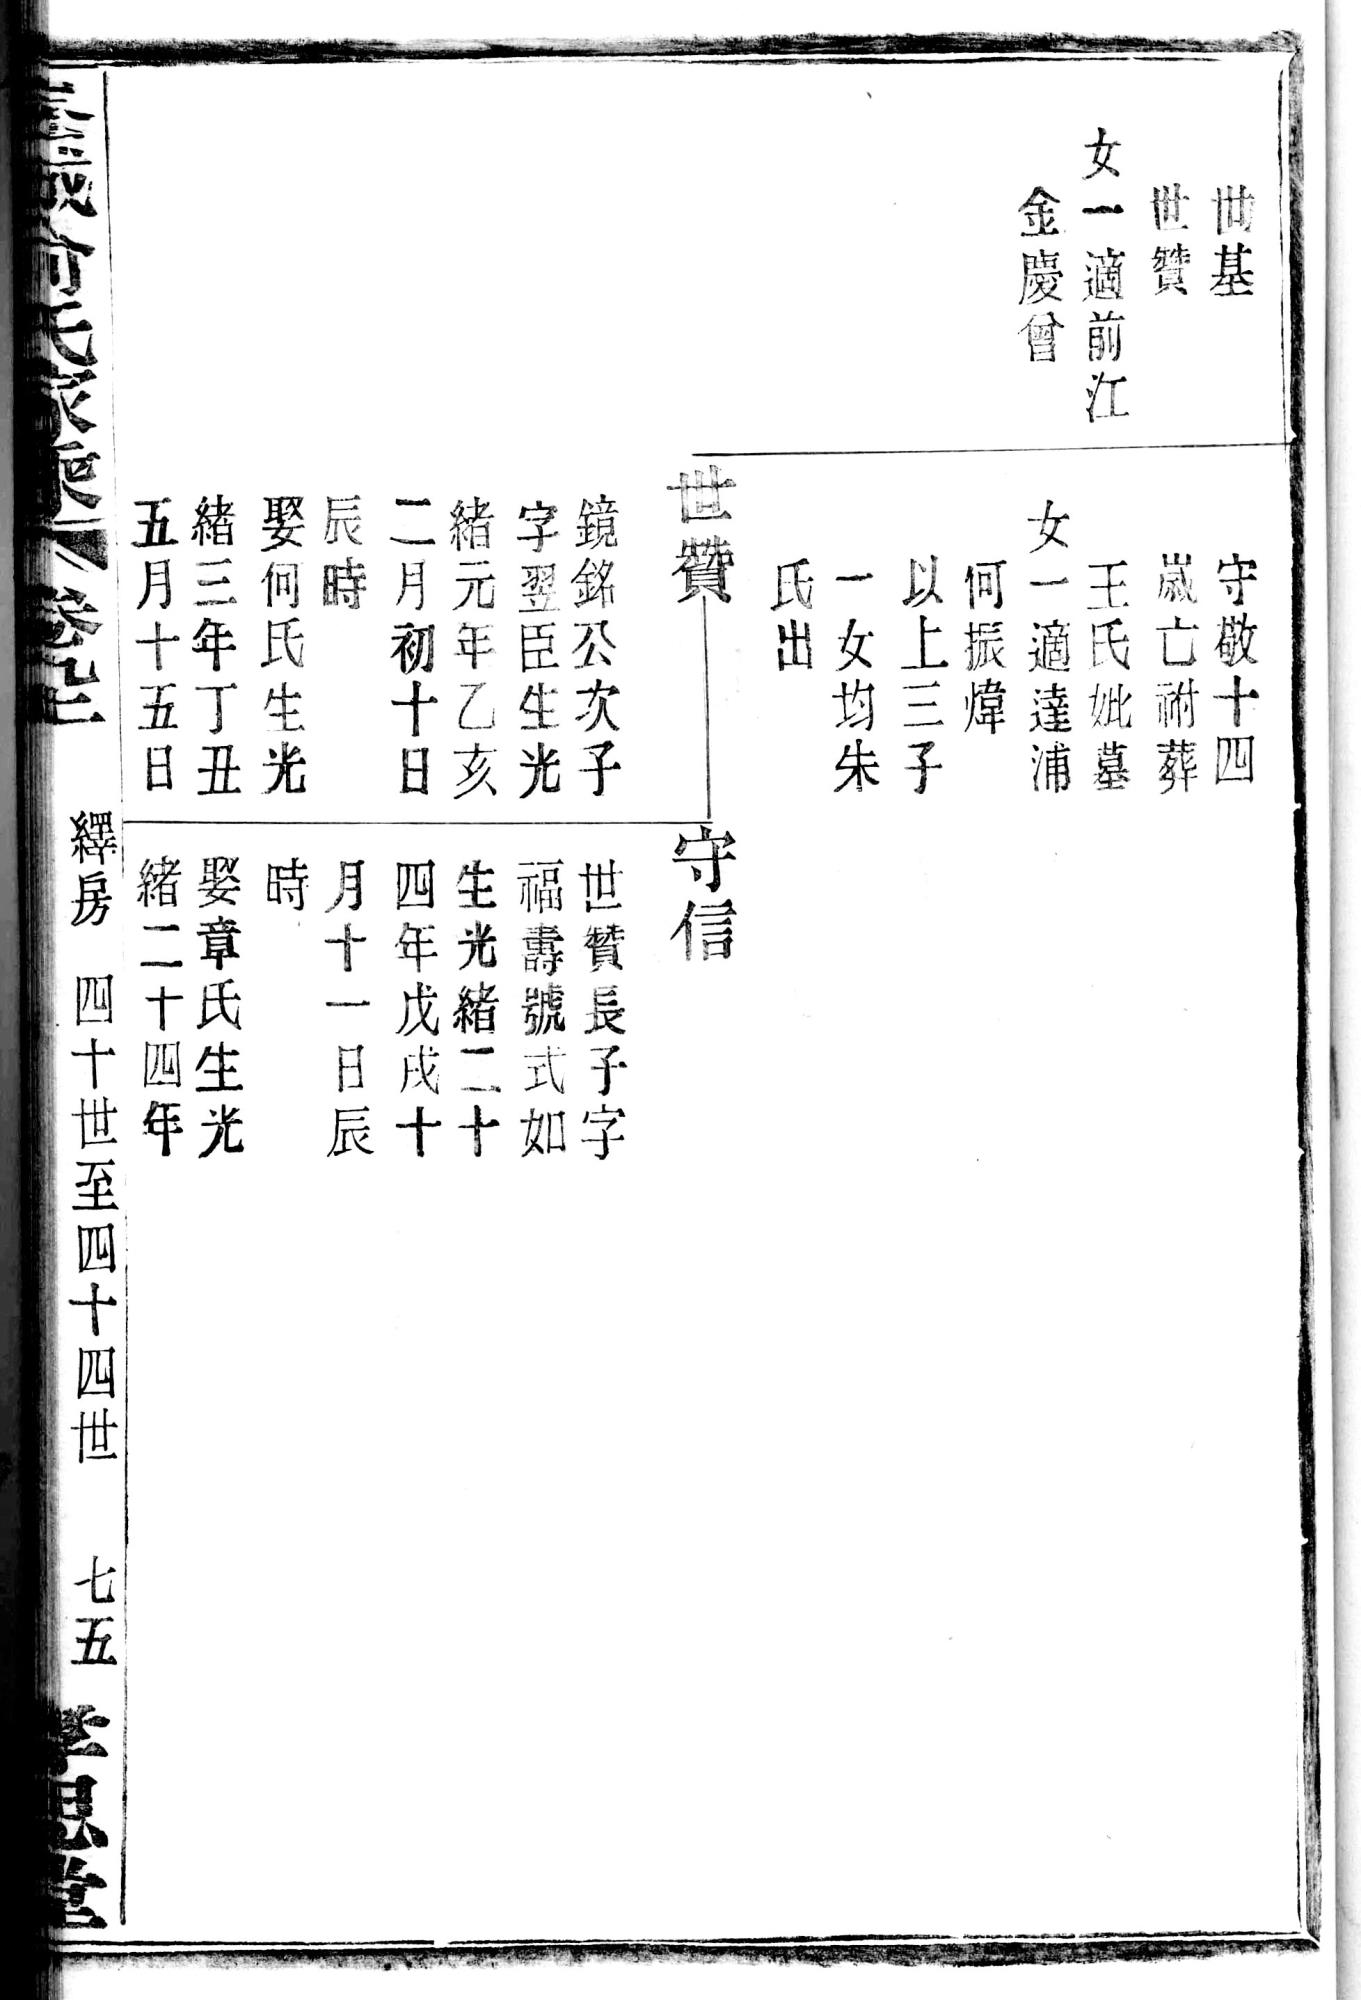 世基
世贊
女一適前江
金慶曾
守敬十四
嵗亡祔葬
王氏妣墓
女一適達浦
何振煒
以上三子
一女均朱
氏出
世贊
鏡銘公次子
字翌臣生光
緒元年乙亥
二月初十日
辰時
娶何氏生光
緒三年丁丑
五月十五日
守信
世贊長子字
福壽號式如
生光緒二十
四年戊戌十
月十一日辰
時
娶章氏生光
緒二十四年
俞氏家乘
卷
繹房 四十世至四十四世 七五
孝思堂